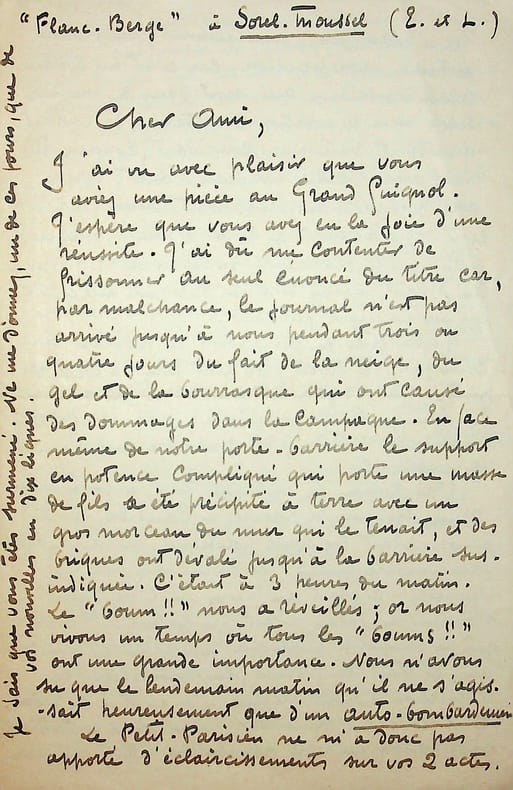 "Flanc-Berge" à Sorel-Moussel (E. et L.)
Cher Ami,
J'ai vu avec plaisir que vous
aviez une pièce au Grand Guignol.
J'espère que vous avez eu la joie d'une
réussite. J'ai dû me contenter de
frissonner au seul énoncé du titre car,
par malchance, le journal n'est pas
arrivé jusqu'à nous pendant trois ou
quatre jours du fait de la neige, du
gel et de la bourrasque qui ont causé
des dommages dans la campagne. En face
même de notre porte-barrière le support
en potence compliqué qui porte une masse
de fils a été précipité à terre avec un
gros morceau du mur qui le tenait, et des
briques ont dévalé jusqu'à la barrière sus-
indiquée. C'était à 3 heures du matin.
Le "boum!!" nous a réveillés ; or nous
vivons un temps où tous les "boums!!"
ont une grande importance. Nous n'avons
su que le lendemain matin qu'il ne s'agis-
-sait heureusement que d'un auto-bombardement
Le Petit-Parisien ne m'a donc pas
apporté d'éclaircissements sur vos 2 actes.
Je sais que vous êtes surmené. Ne me donnez, un de ces jours, que de
vos nouvelles en dix lignes.